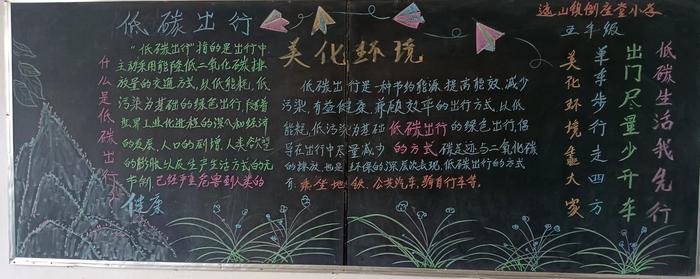 低碳出行
什么是低碳出行？
"低碳出行"指的是出行中，
主动采用能降低二氧化碳排
放量的交通方式，从低能耗，低
污染为基础的绿色出行，随着
世界工业化进程的深入和经济
的发展，人口的剧增，人类欲望
的膨胀以及生产生活方式的无
节制，已经严重危害到人类的
健康
美化环境
低碳出行是一种节约能源，提高能效，减少
污染，有益健康，兼顾效率的出行方式，从低
能耗，低污染为基础低碳出行的绿色出行，倡
导在出行中尽量减少的方式碳足迹与二氧化碳
的排放，也是环保的深层次表现，低碳出行的方式
有：乘坐地铁、公共汽车，骑自行车等。
五年级
低碳生活我先行
出门尽量少开车
单车步行走四方
美化环境靠大家